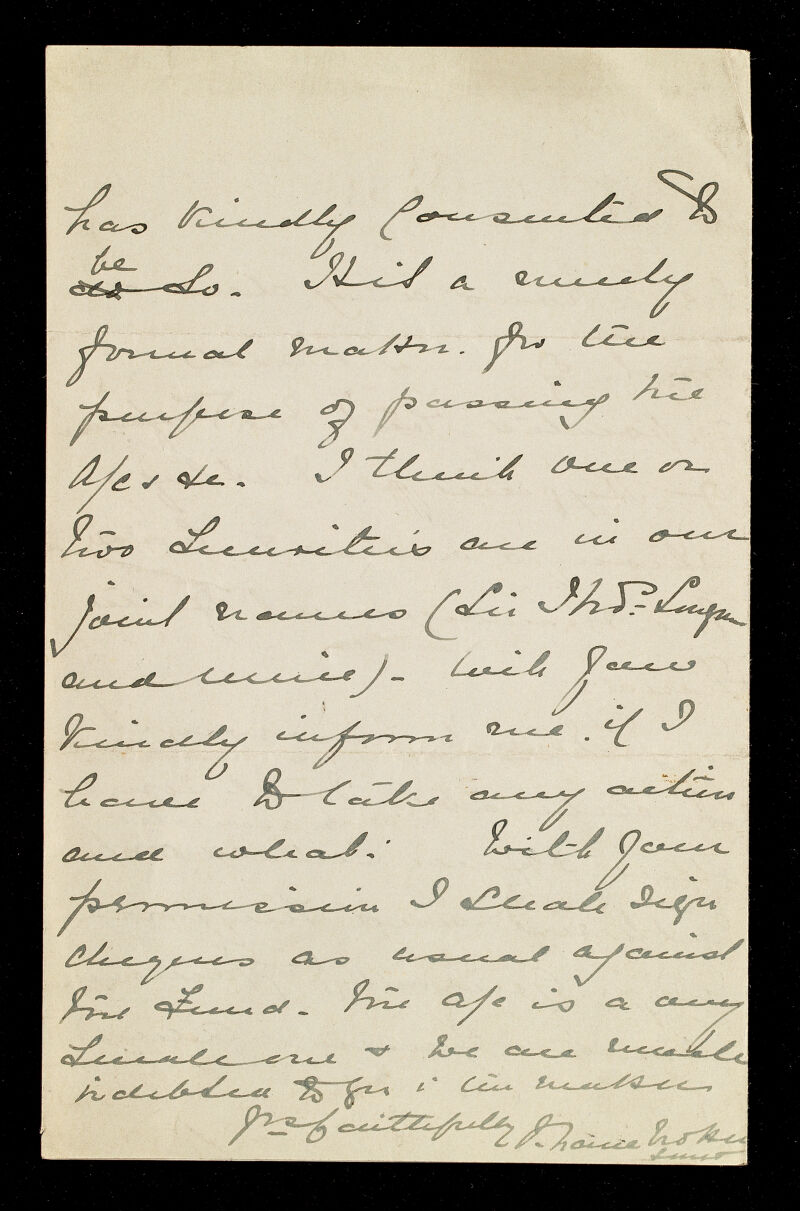 has kindly consented to
be
do so. It is a merely
formal matter. for the
purpose of passing the
A/cs &c. I think one or
two Securities are in our
joint names (Sir Thos.
and mine) - Will you
kindly inform me. if I
have to take any action
and what. With your
permission I shall sign
cheques as usual against
the Fund. The a/c is a very
Small one & we are much
indebted to you in the matter
Yrs faithfully